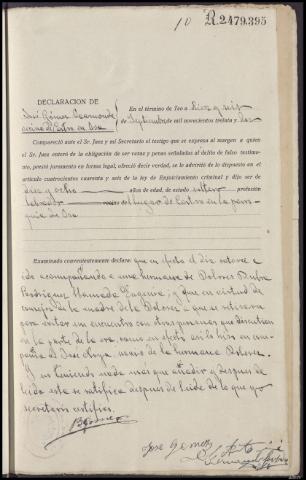 10 R.2479.395
DECLARACION DE
José Gómez
vecino de Castro en Oza
En el término de Teo a diez y seis
de Septiembre de mil novecientos treinta y dos
Compareció ante el Sr. Juez y mi Secretario el testigo que se expresa al margen a quien
el Sr. Juez enteró de la obligación de ser veraz y penas señaladas al delito de falso testimo-
nio, prestó juramento en forma legal, ofreció decir verdad, se le advirtió de lo dispuesto en el
artículo cuatrocientos cuarenta y seis de la ley de Enjuiciamiento criminal y dijo ser de
diez y ocho años de edad, de estado soltero profesión
labrador del lugar de Castro en la parro-
quia de Oza
Examinado convenientemente declara: que en efecto el día
iba acompañando a una hermana de Dolores
Rodriguez llamada y que en virtud de
consejos de la madre de la Dolores que se retirara
para evitar un encuentro con otras personas que discutían
en la parte de la era, como en efecto así lo hizo en com-
pañia de José novio de la hermana Dolores.
Y no teniendo nada más que añadir y después de
leído esto se ratifica después de leido de lo que yo
secretario certifico.
José Gomez